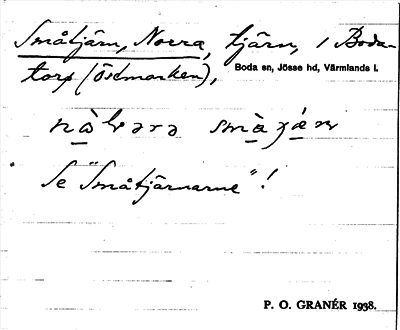 Småtjärn, Norra, tjärn, i Boda-
torp (Östmarken),
Boda sn, Jösse hd, Värmlands l.
Se "Småtjärnarne"!
P. O. GRANÉR 1938.